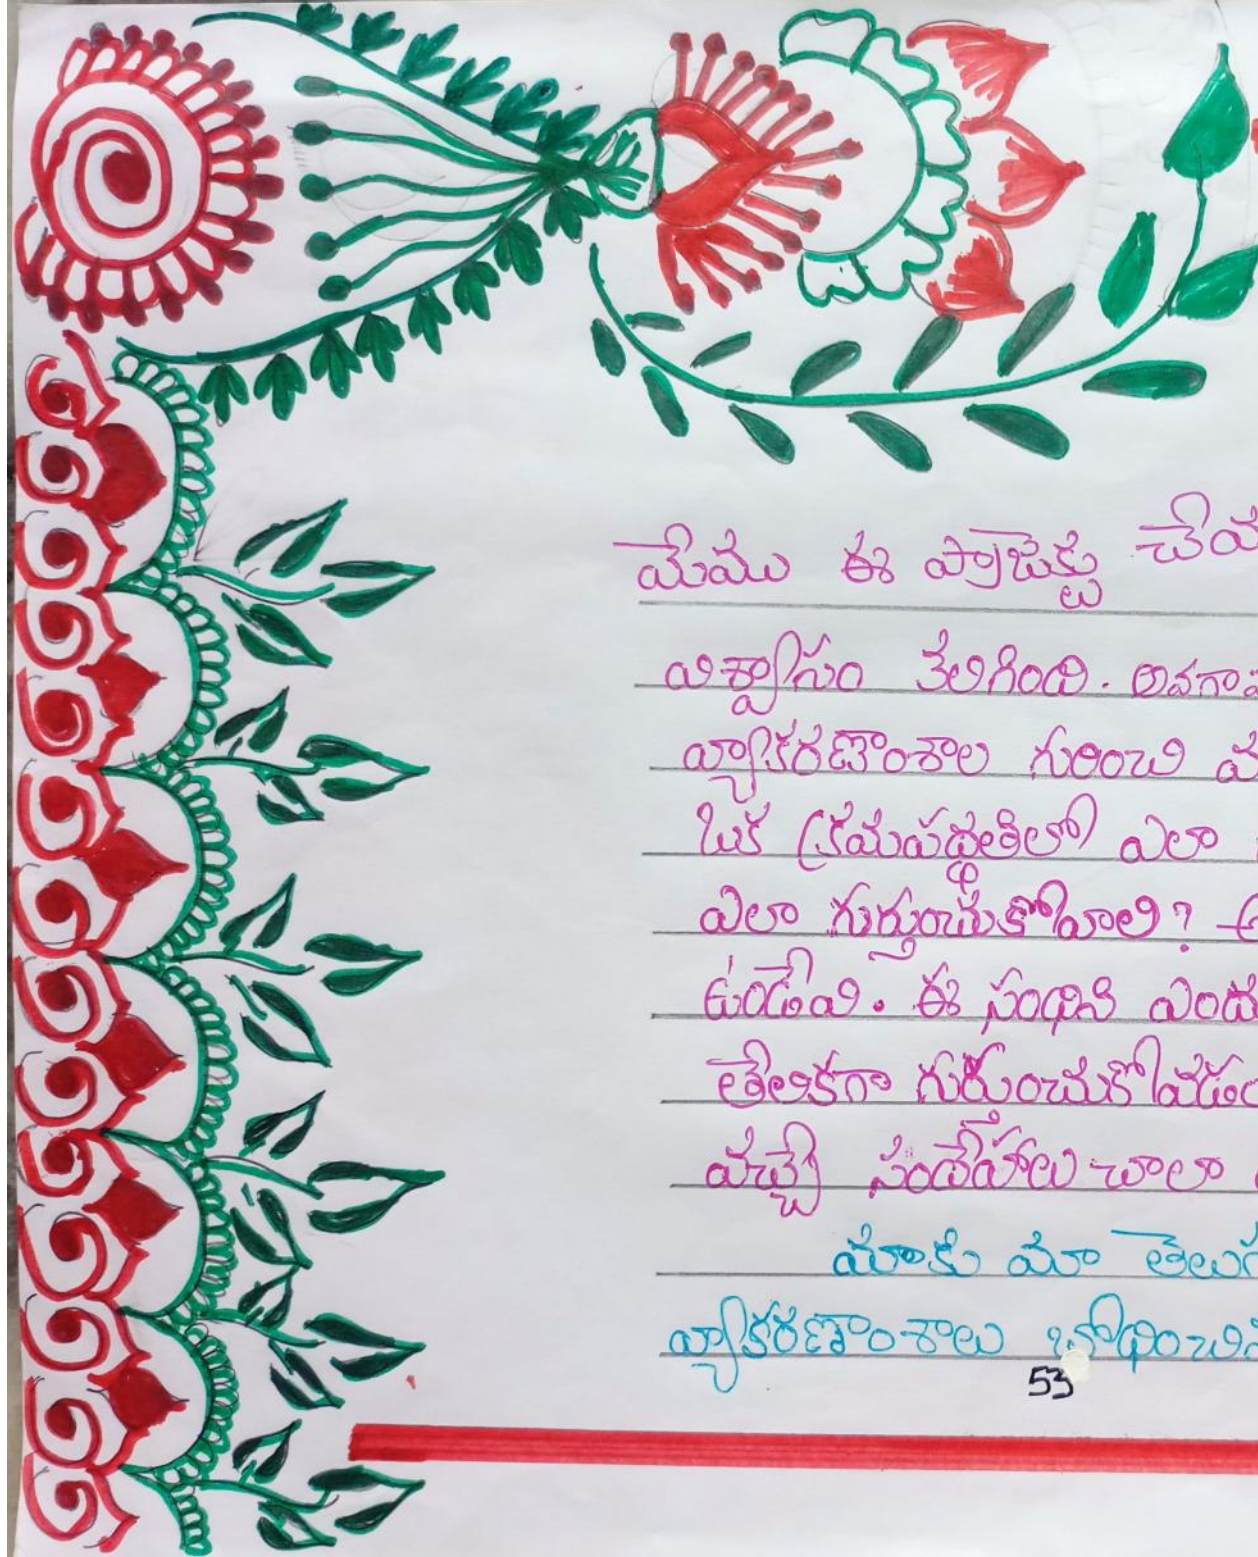 మేము ఈ ప్రాజెక్టు చేయ
విశ్వాసం కలిగింది. అవగాహ
వ్యాకరణాంశాల గురించి
ఒక క్రమపద్ధతిలో ఎలా
ఎలా గుర్తుంచుకోవాలి?
ఉండేవి. ఈ సంధిని ఎందు
తేలికగా గుర్తుంచుకోవడం
వచ్చే సందేహాలు చాలా
మాకు మా తెలుగ
వ్యాకరణాంశాలు బోధించిన
53